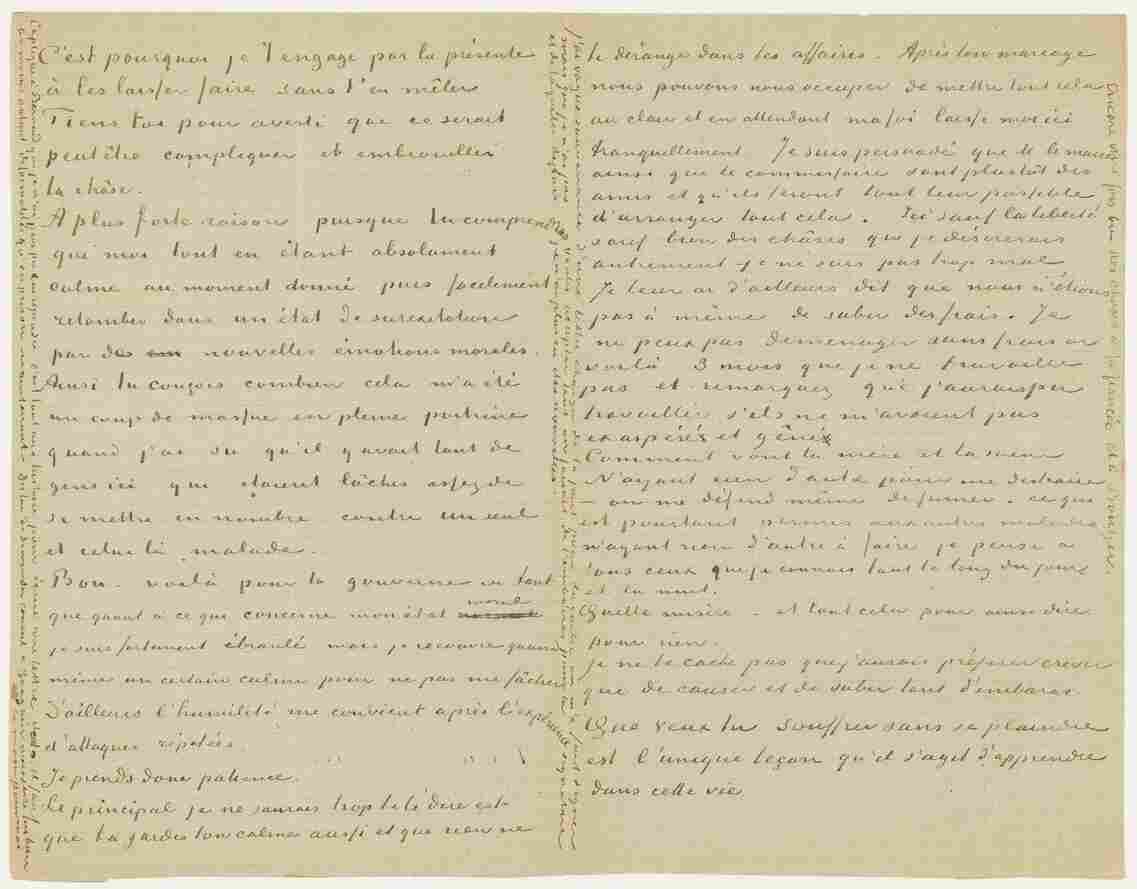 C'est pourquoi je t'engage par la présente
à les laisser faire sans t'en mêler
Tiens toi pour averti que ce serait
peutêtre compliquer et embrouiller
la chôse.
A plus forte raison puisque tu comprendras
qui moi tout en étant absolument
calme au moment donné puis facilement
retomber dans un état de surexcitation
par des nouvelles émotions morales.
Aussi tu conçois combien cela m'a été
un coup de massue en pleine poitrine
quand j'ai su qu'il y avait tant de
gens ici qui étaient lâches assez de
se mettre en nombre contre un seul
et celui là malade.
Bon. voilà pour ta gouverne en tant
que quant à ce que concerne mon état moral
je suis fortement ébranlé mais je recouvre quand
même un certain calme pour ne pas me fâcher
D'ailleurs l'humilité me convient après l'expérience
d'attaques répetées.
Je prends donc patience.
Le principal je ne saurais trop te le dire est
que tu gardes ton calme aussi et que rien ne
te dérange dans tes affaires. Après ton mareage
nous pouvons nous occuper de mettre tout cela
au clair et en attendant ma foi laisse moi ici
tranquillement Je suis persuadé que M. le maire
ainsi que le commissaire sont plustôt des
amis et qu'ils feront tout leur possible
d'arranger tout cela. Ici sauf la liberté
sauf bien des chôses que je désirerais
autrement je ne suis pas trop mal
Je leur ai d'ailleurs dit que nous n'étions
pas à même de subir des frais. Je
ne peux pas demenager sans frais or
voilà 3 mois que je ne travaille
pas et remarquez que j'aurais pu
travailler s'ils ne m'avaient pas
exaspéré et gêné
Comment vont la mère et la soeur
N'ayant rien d'autre pour me distraire
– on me défend même de fumer – ce que
est pourtant permis aux autres malades
n'ayant rien d'autre à faire je pense à
tous ceux que je connais tout le long du jour
et la nuit.
Quelle misère – et tout cela pour ainsi dire
pour rien.
Je ne te cache pas que j'aurais préféré crever
que de causer et de subir tant d'embaras.
Que veux tu souffrir sans se plaindre
est l'unique leçon qu'il s'agit d'apprendre
dans cette vie
Encore une fois bien des choses à ta fiancée et à Bonger.